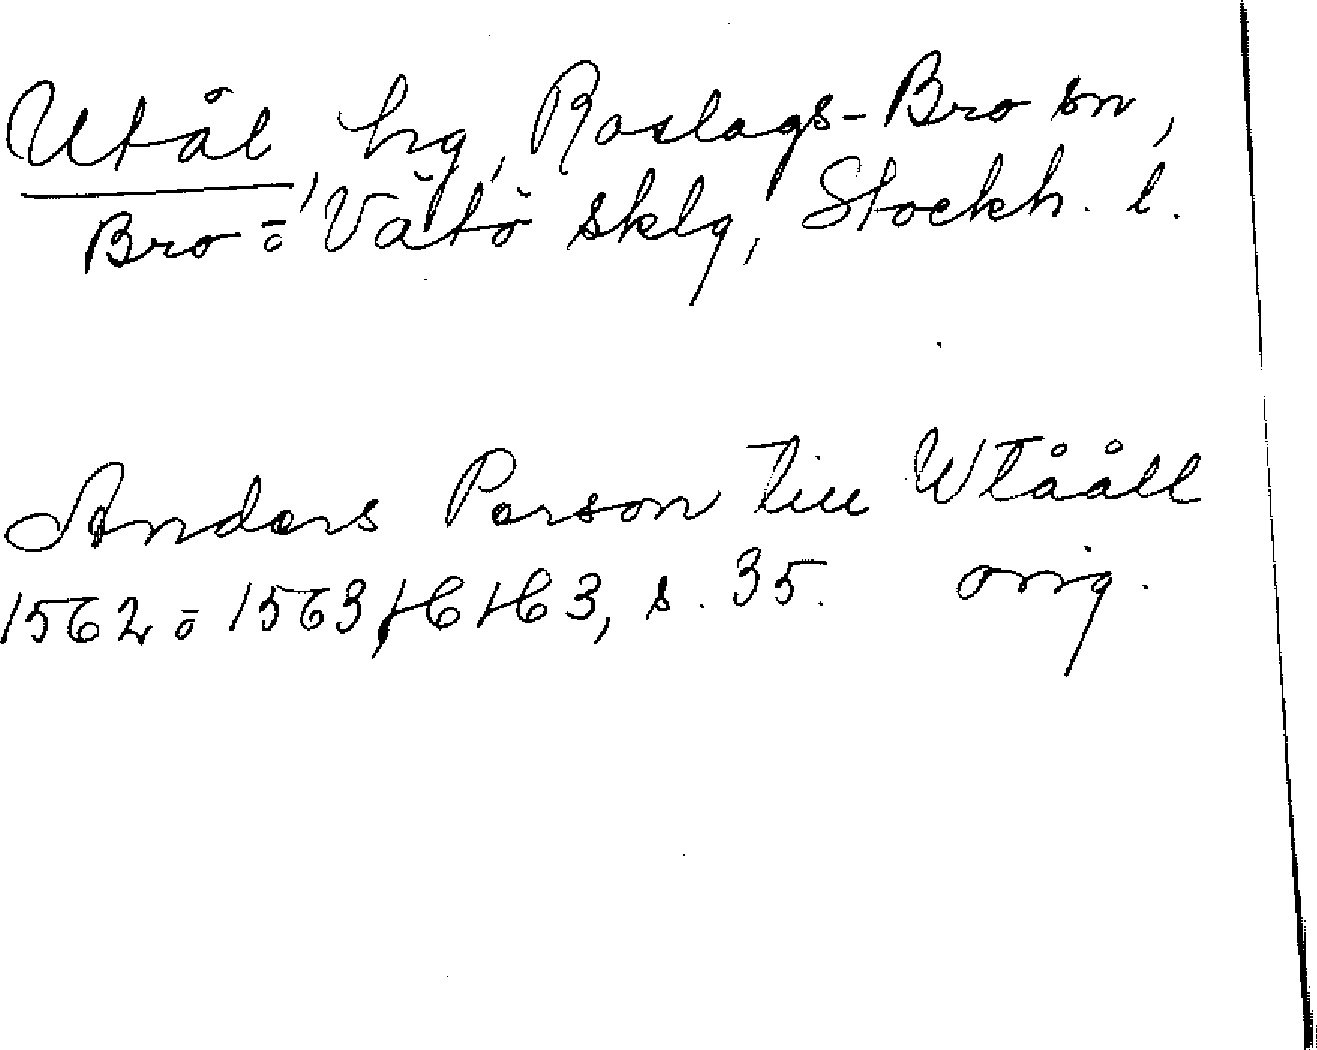 Utål, hg, Roslags-Bro sn,
Bro = Vätö sklg, Stockh. l.
Anders Person till Wtååll
1562 = 1563, s. 35. orig.